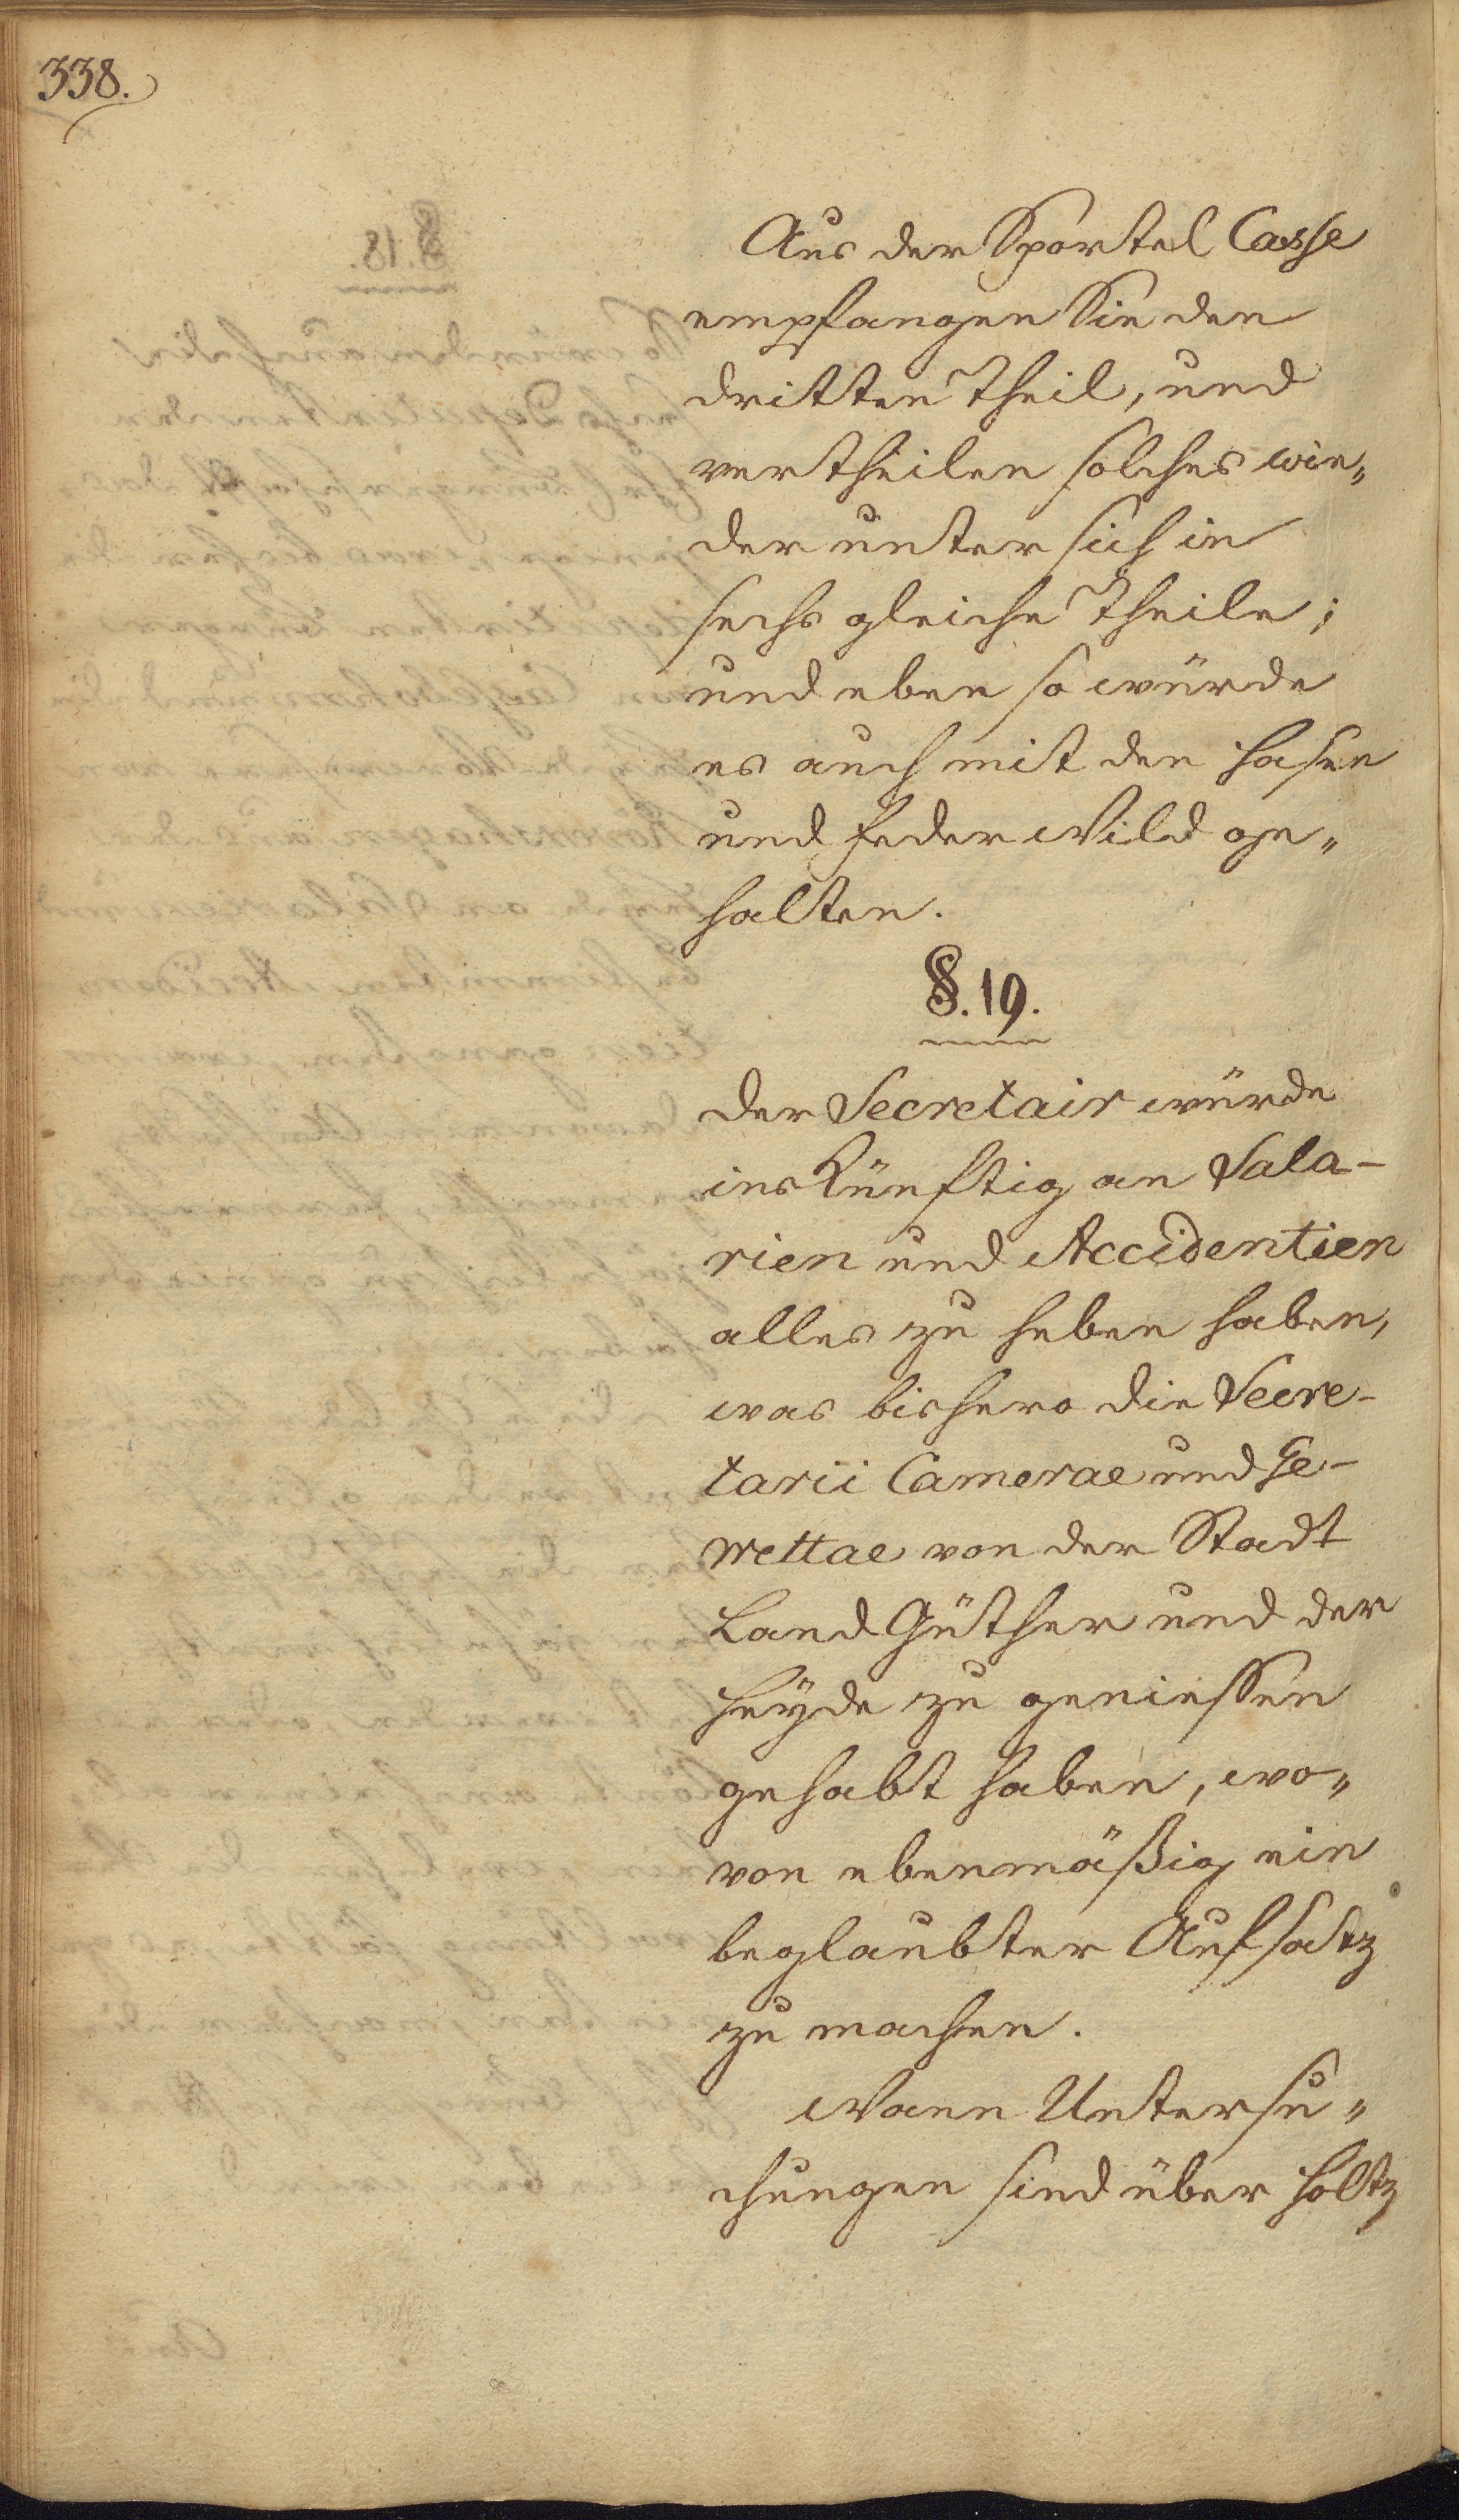 338.
Aus der Sportel Casse
empfangen Sie den
dritten Theil, und
vertheilen solches wie„
der unter sich in
sechs gleiche Theile;
und eben so würde
es auch mit den Hasen
und Feder Wild ge„
halten.
§. 19.
Der Secretair würde
ins Künftig an Sala-
rien und Accidentien
alles zu heben haben,
was bishero die Secre-
tarii Camerae und Ge-
wettae von der Stadt
Land Güther und der
Heyde zu geniessen
gehabt haben, wo„
von ebenmäßig ein
beglaubter Aufsatz
zu machen.
Wann Untersu„
chungen sind über Holtz